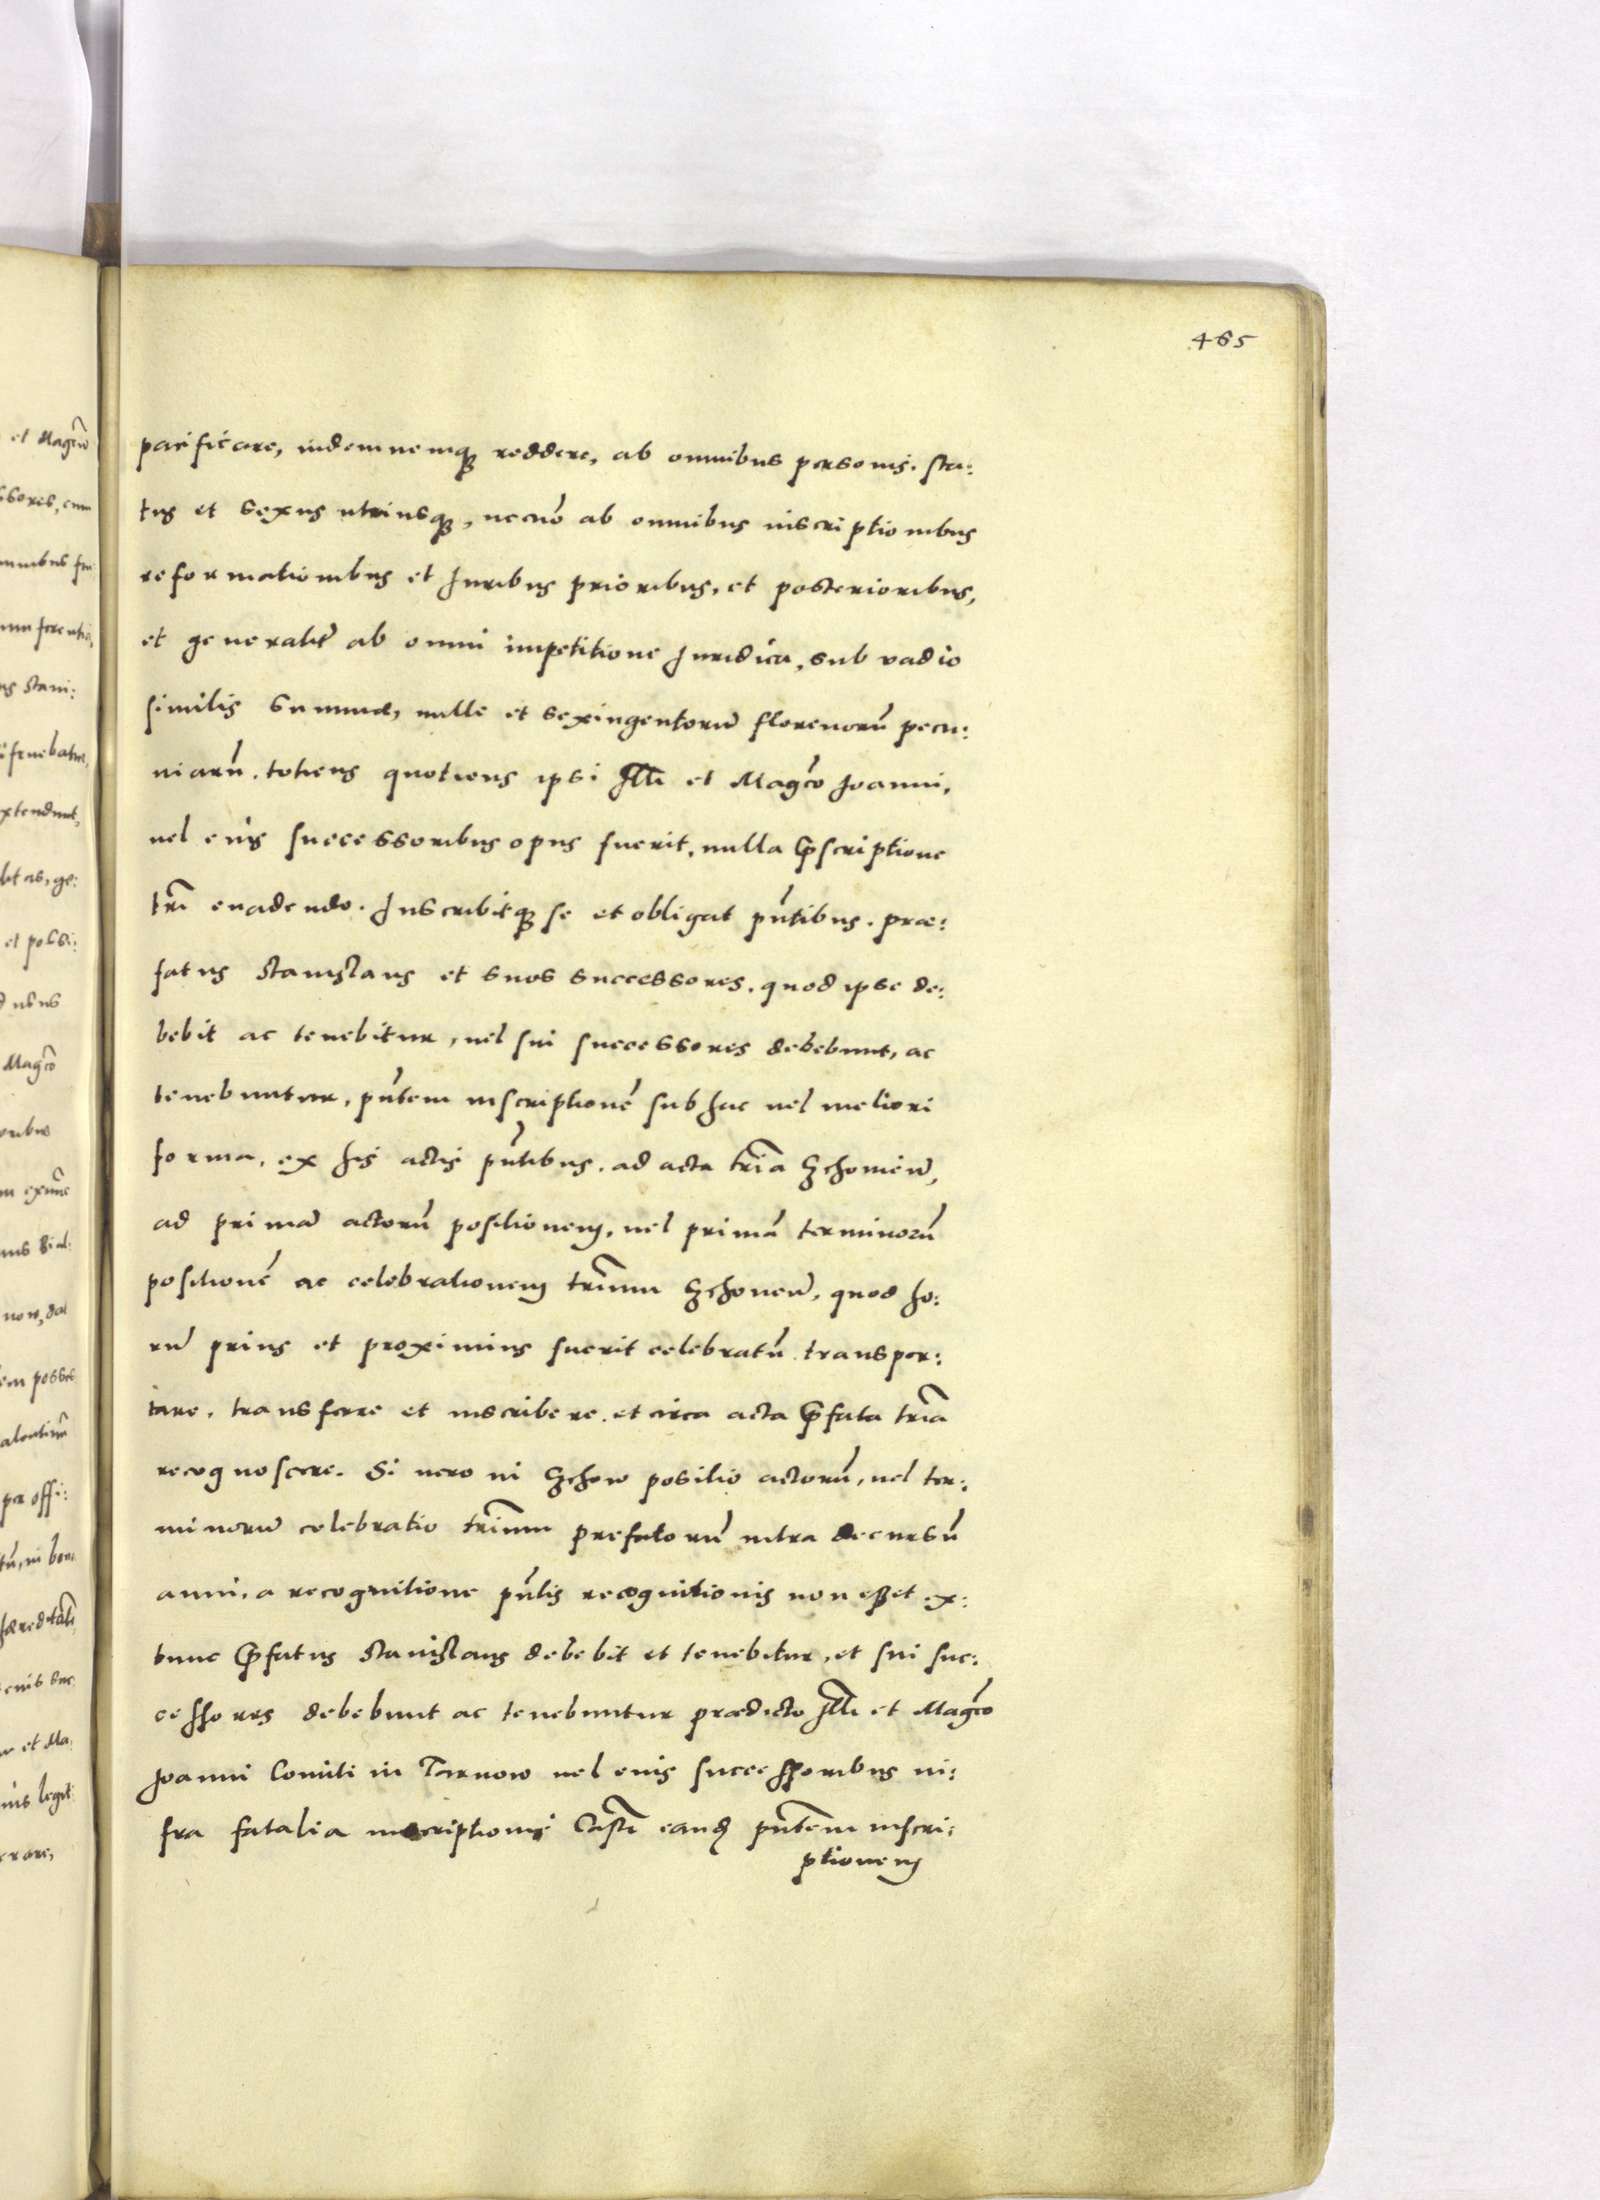 465
pacificare, indemnemq₃ reddere, ab omnibus personis. sta:
tus et sexus utriusq₃, necnō ab omnibus inscriptionibus
reformationibus et Juribus prioribus, et posterioribus,
et generalit̃ ab omni impetitione Juridica, sub vadio
similis summæ, mille et sexingentorum̃ florenorũ pecu:
niarũ. totiens quotiens ipsi Illi et Magc̃o Joanni,
uel eius successoribus opus fuerit, nulla p̃scriptione
tr̃i euadendo. Inscribitq₃ se et obligat pñtibus. præ:
fatus Stanislaus et suos successores. quod ipse de:
bebit ac tenebitur, uel sui successores debebunt, ac
tenebuntur, pñtem inscriptionẽ sub hac uel meliori
forma, ex his actis pñtibus. ad acta tr̃ia
ad primã actorũ positionem, uel primã terminorũ
positionẽ ac celebrationem tr̃ium quod ho:
rũ prius et proximius fuerit celebratũ. transpor:
tare. transferre et inscribere. et circa acta p̃fata tr̃ia
recognoscere. Si uero in positio actorũ, uel ter:
minorũ celebratio tr̃ium prefatorũ intra decursũ
anni, a recognitione pñtis recognitionis non esset. ex:
tunc p̃fatus Stanislaus debebit et tenebitur, et sui suc:
cessores debebunt ac tenebuntur prædicto Illi et Magc̃o
Joanni Comiti in Tarnow uel eius successoribus in:
fra fatalia inscriptionis Castr̃ eand pñtem inscri:
ptionem
et Magc̃o